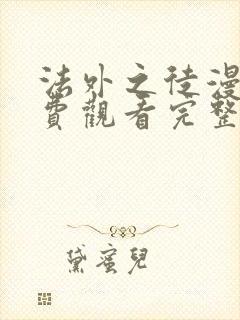 法外之徒漫
費觀看完整
黛蜜兒